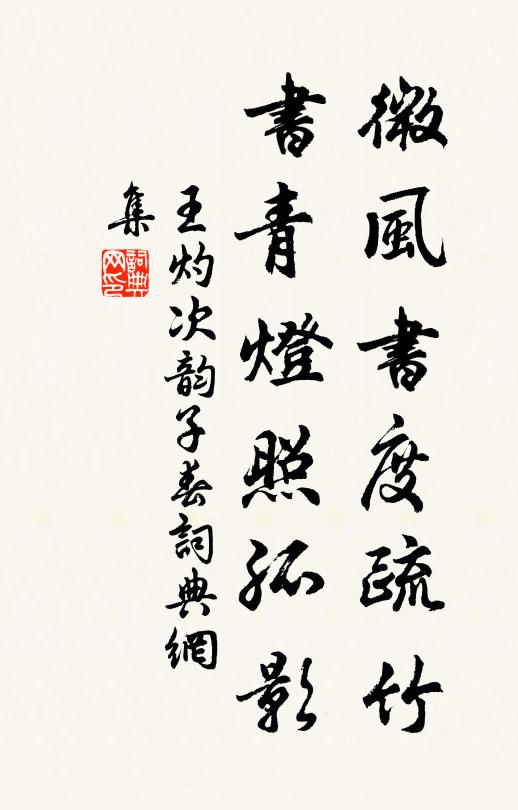 微風書度疏竹
書青燈照孤影
王灼次韵子春詞典網
集
詞典网印